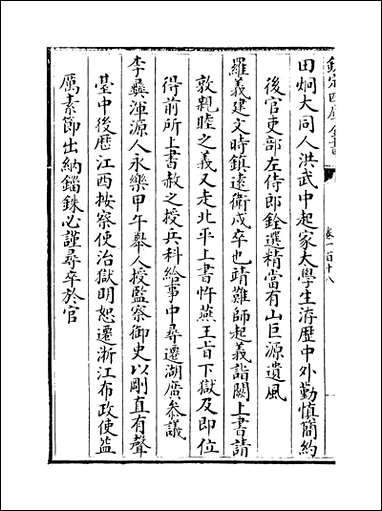 欽定四庫全書
卷一百十八
田炯大同人洪武中起家太學生洊歷中外勤慎簡約
後官吏部左侍郎銓選精當有山巨源遺風
羅義建文時鎮遠衛戍卒也靖難師起義詣闕上書請
敦親睦之義又走北平上書忤燕王旨下獄及即位
得前所上書赦之授兵科給事中尋遷湖廣參議
李彝渾源人永樂甲午舉人授監察御史以剛直有聲
臺中後歷江西按察使治獄明恕遷浙江布政使益
厲素節出納錙銖必謹尋卒於官